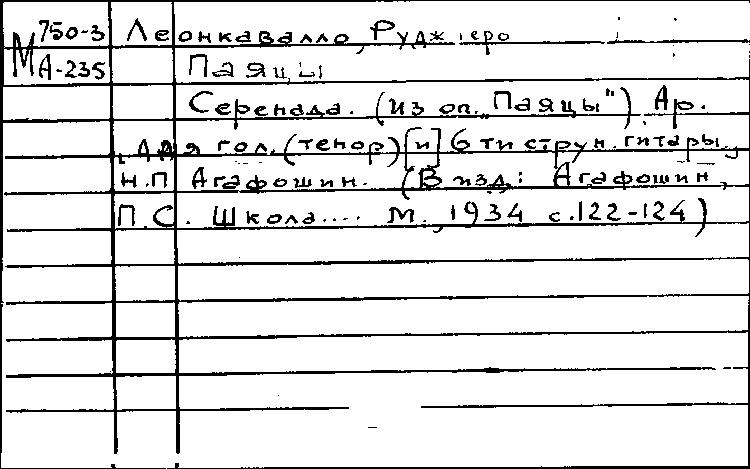 М 750-3 Леонкавалло, Руджіеро
А-235 Паяцы
Серенада. (Из оп. „Паяцы"). Ар.
для гол. (тенор) [и] 6ти струн. гитары.
Н.П Агафошин. (В изд: Агафошин,
П.С. Школа.... М., 1934 с.122-124)